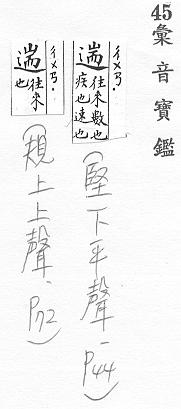 45彙音寶鑑
ㄔㄨㄢˊ
遄
往來數也
疾也速也
(堅下平聲、P44)
ㄔㄨㄢˊ
遄
往來也
(規上上聲、P72)